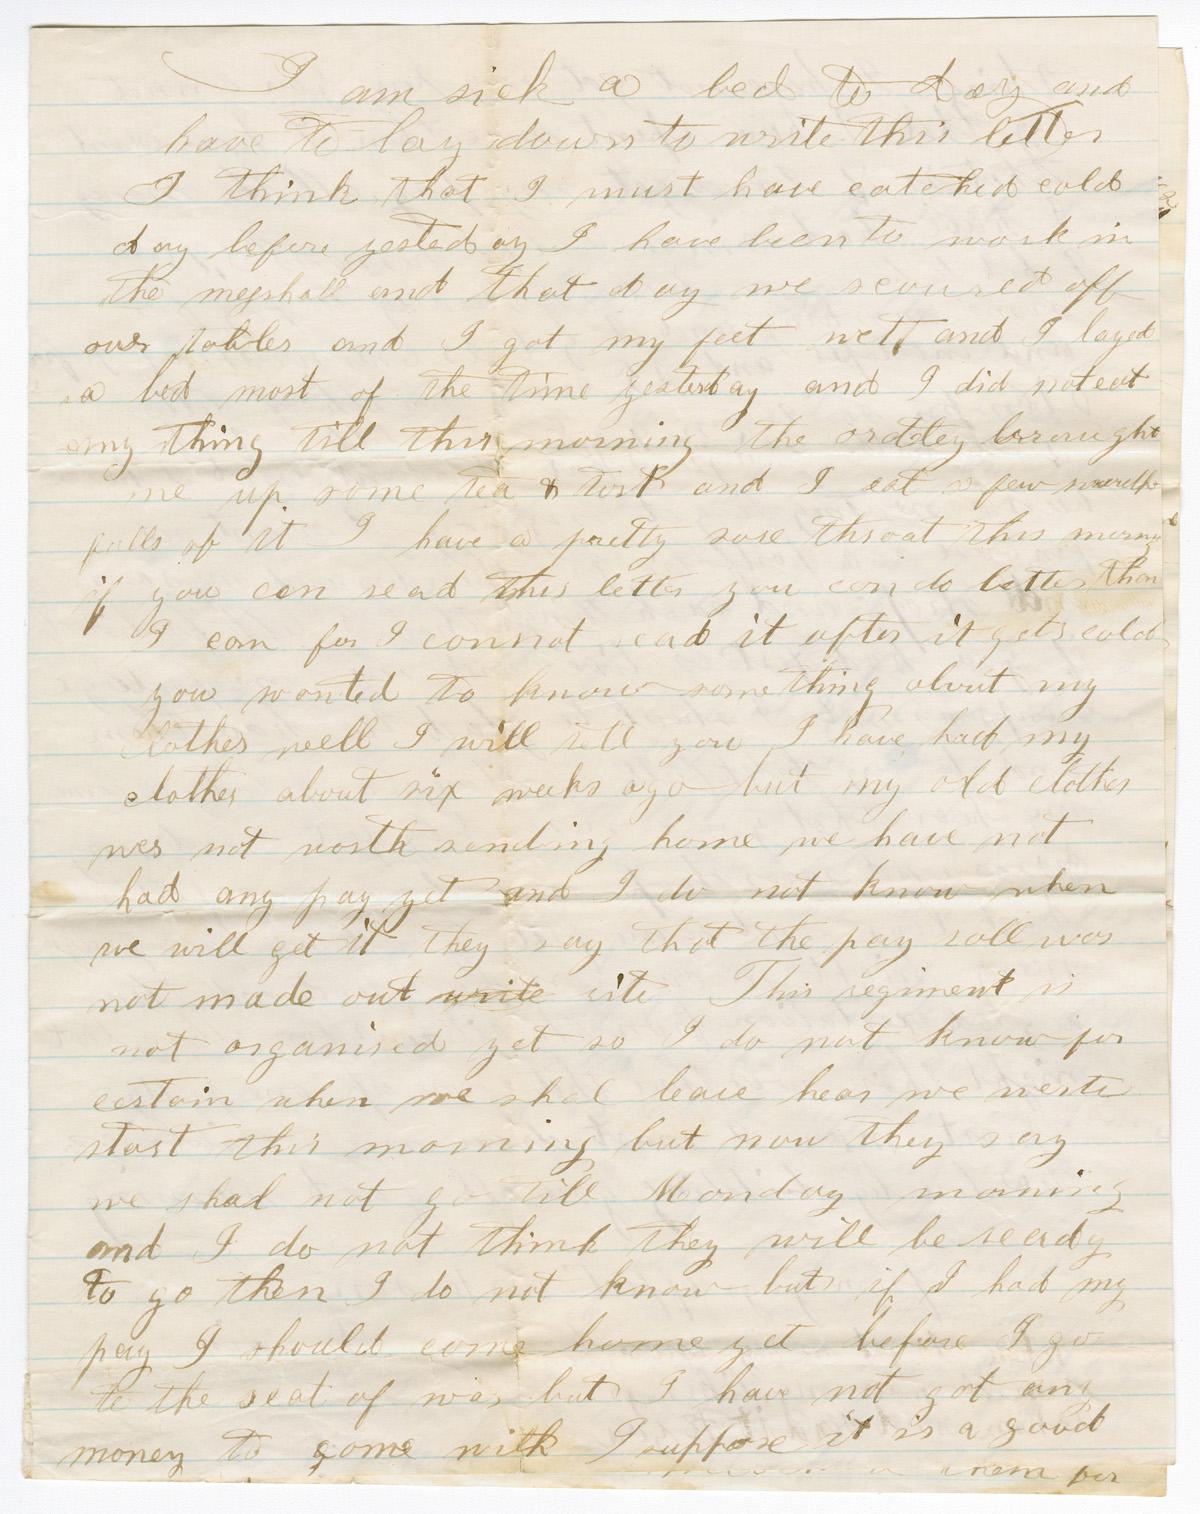 I am sick a bed to day and
have to lay down to write this letter
I think that I must have catched cold
day before yesterday I have been to work in
the messhall and that day we scoured off
our tables and I got my feet wett and I layed
a bed most of the time yesterday and I did not eat
any thing till this morning the ordley brought
me up some tea & tost and I eat a few mouth
fulls of it I have a pretty sore throat this morning
if you can read this letter you can do better than
I can for I connot read it after it gets cold
you wanted to know something about my
clothes well I will tell you I have had my
clothes about six weeks ago but my old clothes
wer not worth sending home we have not
had any pay yet and I do not know when
we will get it they say that the pay roll was
not made out write rite This regiment is
not organised yet so I do not know for
certain when we shal leave hear we werte
start this morning but now they say
we shal not go till Monday morning
and I do not think they will be ready
to go then I do not know but if I had my
pay I should come home yet before I go
to the seat of war but I have not got any
money to come with I suppose it is a good
them for